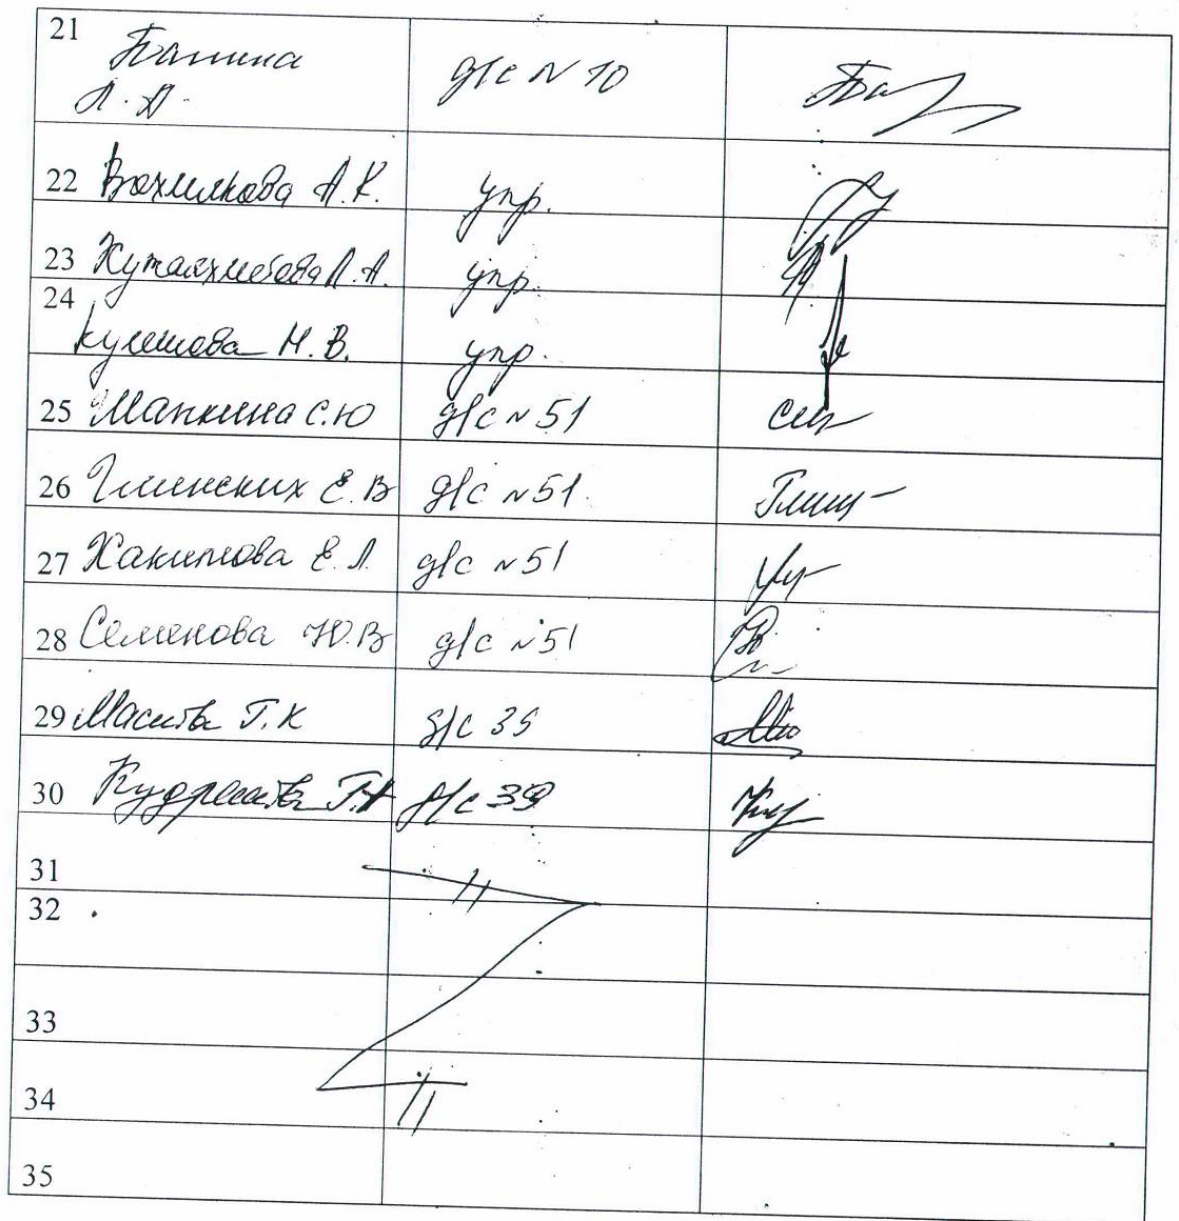 21 Банина д/с N 10
Л. А.
22 Вохмилкова А.К. упр.
23 Кутлахметова Л.А. упр.
24
Кулешова Н.В. упр.
25 Шапкина С.Ю д/с N 51
26 Глинских Е.В д/с N 51
27 Хакимова Е.Л. д/с N 51
28 Семенова Ю.В д/с N 51
29 Г.К д/с 39
30 д/с 39
31
32
33
34
35